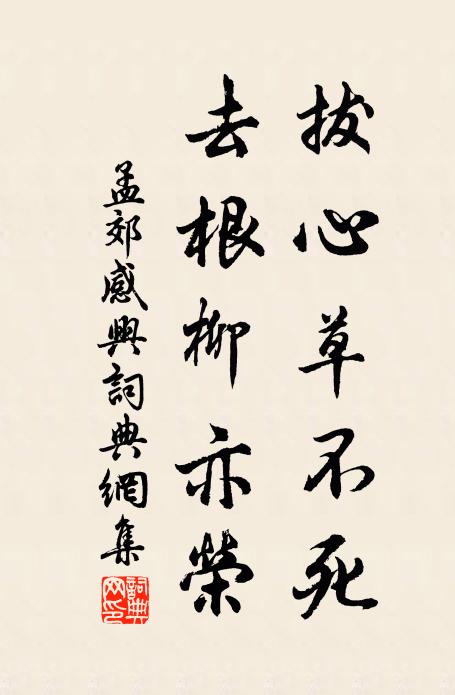 拔心草不死
去根柳亦榮
孟郊感興詞典網集
詞典網印